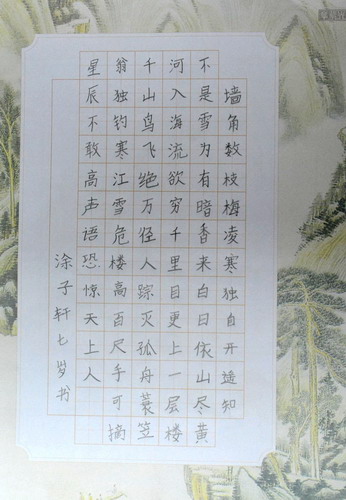 墙角数枝梅凌寒独自开遥知
不是雪为有暗香来白日依山尽黄
河入海流欲穷千里目更上一层楼
千山鸟飞绝万径人踪灭孤舟蓑笠
翁独钓寒江雪危楼高百尺手可摘
星辰不敢高声语恐惊天上人
涂子轩七岁书